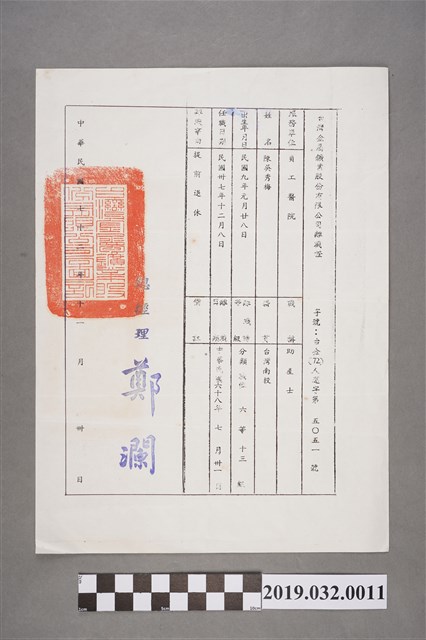 台灣金屬鑛業股份有限公司離職證
字號：台金(72)人運字第 五〇五一 號
服務單位 員工醫院
職稱 助產士
姓名 陳吳秀梅
籍貫 台灣南投
出生年月日 民國九年元月廿八日
分類職位 六等十三級
任職日期 民國卅七年十二月八日
中華民國六十八年 七月卅一日
離職原因 提前退休
總經理 鄭瀾
中華民國七十二年十一月卅日
2019.032.0011